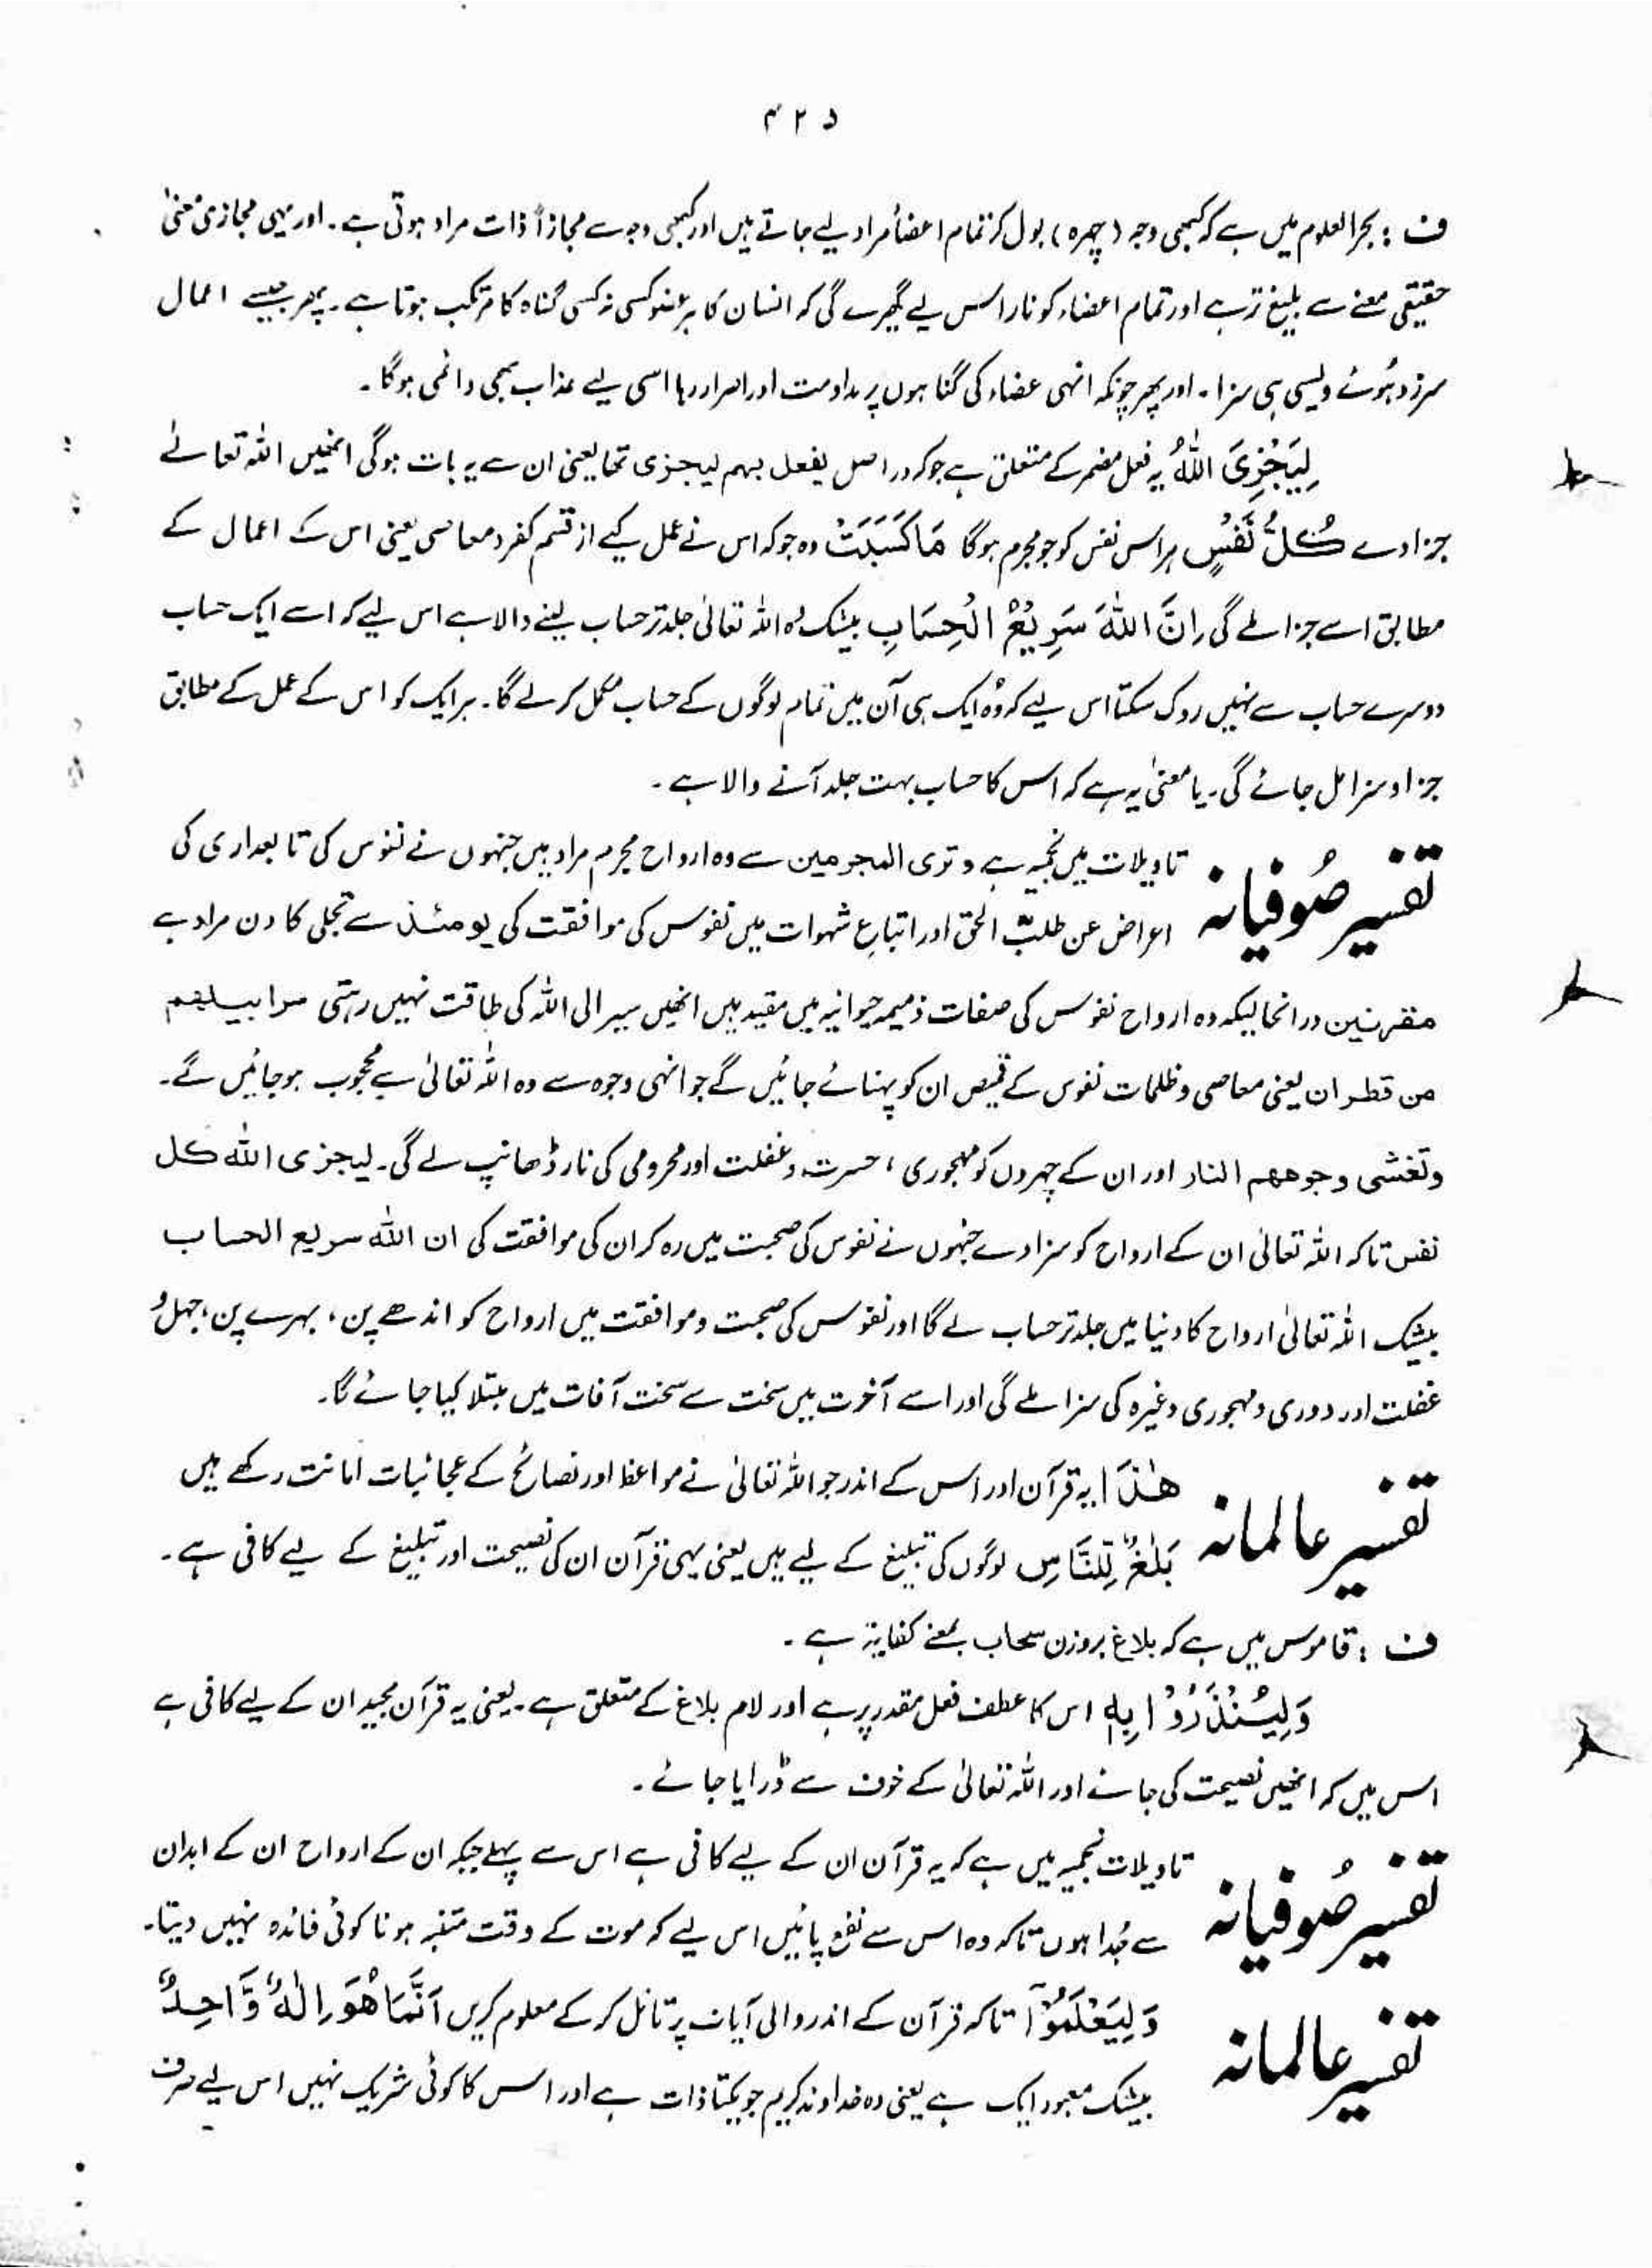 ۴۲۵
ف : بحر العلوم میں ہے کہ کبھی وجہ (چہرہ) بول کر تمام اعضأ مراد لیے جاتے ہیں اور کبھی وجہ سے مجازاً ذات مراد ہوتی ہے۔ اور یہی مجازی معنیٰ
حقیقی معنے سے بلیغ تر ہے اور تمام اعضاء کو نار اس لیے گھیرے گی کہ انسان کا ہر عضو کسی نہ کسی گناہ کا مرتکب ہوتا ہے۔ پھر جیسے اعمال
سرزد ہُوئے ویسی ہی سزا۔ اور پھر چونکہ انہی عضاء کی گناہوں پر مداومت اور اصرار رہا اسی لیے عذاب بھی دائمی ہوگا۔
لِيَجْزِىَ اللّٰهُ یہ فعل مضمر کے متعلق ہے جو کہ دراصل یفعل بہم لیجزی تھا یعنی ان سے یہ بات ہوگی انھیں اللہ تعالےٰ
جزا دے كُلَّ نَفْسٍ ہر اس نفس کو جو مجرم ہوگا مَا كَسَبَتْ وہ جو کہ اس نے عمل کیے از قسم کفر و معاصی یعنی اس کے اعمال کے
مطابق اسے جزا ملے گی اِنَّ اللّٰهَ سَرِيْعُ الْحِسَابِ بیشک اللہ تعالیٰ جلد تر حساب لینے والا ہے اس لیے کہ اسے ایک حساب
دوسرے حساب سے نہیں روک سکتا اس لیے کہ وُہ ایک ہی آن میں تمام لوگوں کے حساب مکمل کرلے گا۔ ہر ایک کو اس کے عمل کے مطابق
جزا و سزا مل جائے گی۔ یا معنیٰ یہ ہے کہ اس کا حساب بہت جلد آنے والا ہے۔
تفسیر صُوفیانہ تاویلات میں نجمیہ ہے وتری المجرمین سے وہ ارواح مجرم مراد ہیں جنہوں نے نفوس کی تابعداری کی
اعراض عن طلب الحق اور اتباعِ شہوات میں نفوس کی موافقت کی یومئذ سے تجلی کا دن مراد ہے
مقرنین درانحالیکہ وہ ارواح نفوس کی صفات ذمیمہ حیوانیہ میں مقید ہیں انھیں سیر الی اللہ کی طاقت نہیں رہتی سرابیلھم
من قطران یعنی معاصی و ظلمات نفوس کے قمیص ان کو پہنائے جائیں گے جو انہی وجوہ سے وہ اللہ تعالیٰ سے محجوب ہوجائیں گے۔
وتغشی وجوھھم النار اور ان کے چہروں کو مہجوری ، حسرت و غفلت اور محرومی کی نار ڈھانپ لے گی۔ لیجزی اللہ کل
نفس تاکہ اللہ تعالیٰ ان کے ارواح کو سزا دے جنہوں نے نفوس کی صحبت میں رہ کر ان کی موافقت کی ان اللہ سریع الحساب
بیشک اللہ تعالیٰ ارواح کا دنیا میں جلد تر حساب لے گا اور نفوس کی صحبت و موافقت میں ارواح کو اندھے پن ، بہرے پن ، جہل و
غفلت اور دوری و مہجوری وغیرہ کی سزا ملے گی اور اسے آخرت میں سخت سے سخت آفات میں مبتلا کیا جائے گا۔
تفسیر عالمانہ هٰذَا یہ قرآن اور اس کے اندر جو اللہ تعالیٰ نے مواعظ اور نصائح کے عجائبات امانت رکھے ہیں
بَلٰغٌ لِّلنَّاسِ لوگوں کی تبلیغ کے لیے ہیں یعنی یہی قرآن ان کی نصیحت اور تبلیغ کے لیے کافی ہے۔
ف : قاموس میں ہے کہ بلاغ بروزن سحاب بمعنے کفایۃ ہے۔
وَلِيُنْذَرُوْا بِهٖ اس کا عطف فعل مقدر پر ہے اور لام بلاغ کے متعلق ہے۔ یعنی یہ قرآن مجید ان کے لیے کافی ہے
اس میں کہ انھیں نصیحت کی جائے اور اللہ تعالیٰ کے خوف سے ڈرایا جائے۔
تفسیر صُوفیانہ تاویلات نجمیہ میں ہے کہ یہ قرآن ان کے لیے کافی ہے اس سے پہلے جبکہ ان کے ارواح ان کے ابدان
سے جُدا ہوں تاکہ وہ اس سے نفع پائیں اس لیے کہ موت کے وقت متنبہ ہونا کوئی فائدہ نہیں دیتا۔
تفسیر عالمانہ وَلِيَعْلَمُوْٓا تاکہ قرآن کے اندر والی آیات پر تامل کر کے معلوم کریں اَنَّمَا هُوَ اِلٰهٌ وَّاحِدٌ
بیشک معبود ایک ہے یعنی وہ خداوند کریم جو یکتا ذات ہے اور اس کا کوئی شریک نہیں اس لیے صرف